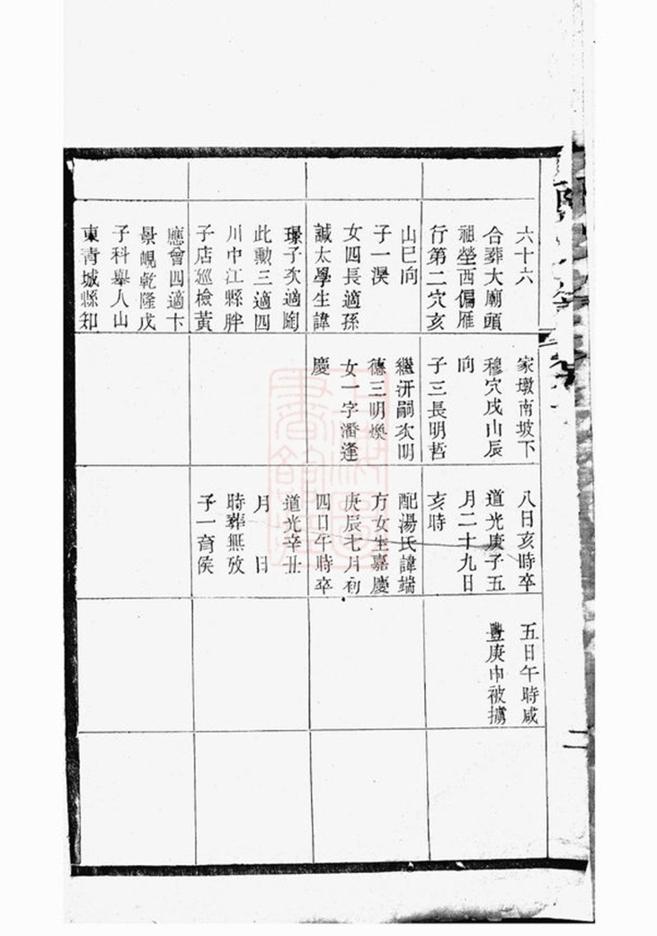 六十六
合葬大廟頭
祖塋西偏雁
行第二穴亥
山巳向
子一淏
女四長適孫
誠太學生諱
璟子次適陶
此勲三適四
川中江縣胖
子店巡檢黄
應會四適卞
景峴乾隆戊
子科舉人山
東青城縣知
家墩南坡下
穆穴戌山辰
向
子三長明哲
繼汧嗣次明
德三明煥
女一字潘逢
慶
八日亥時卒
道光庚子五
月二十九日
亥時
配湯氏諱端
方女生嘉慶
庚辰七月初
四日午時卒
道光辛丑
月 日
時葬無攷
子一育侯
五日午時咸
豐庚申被擄
二